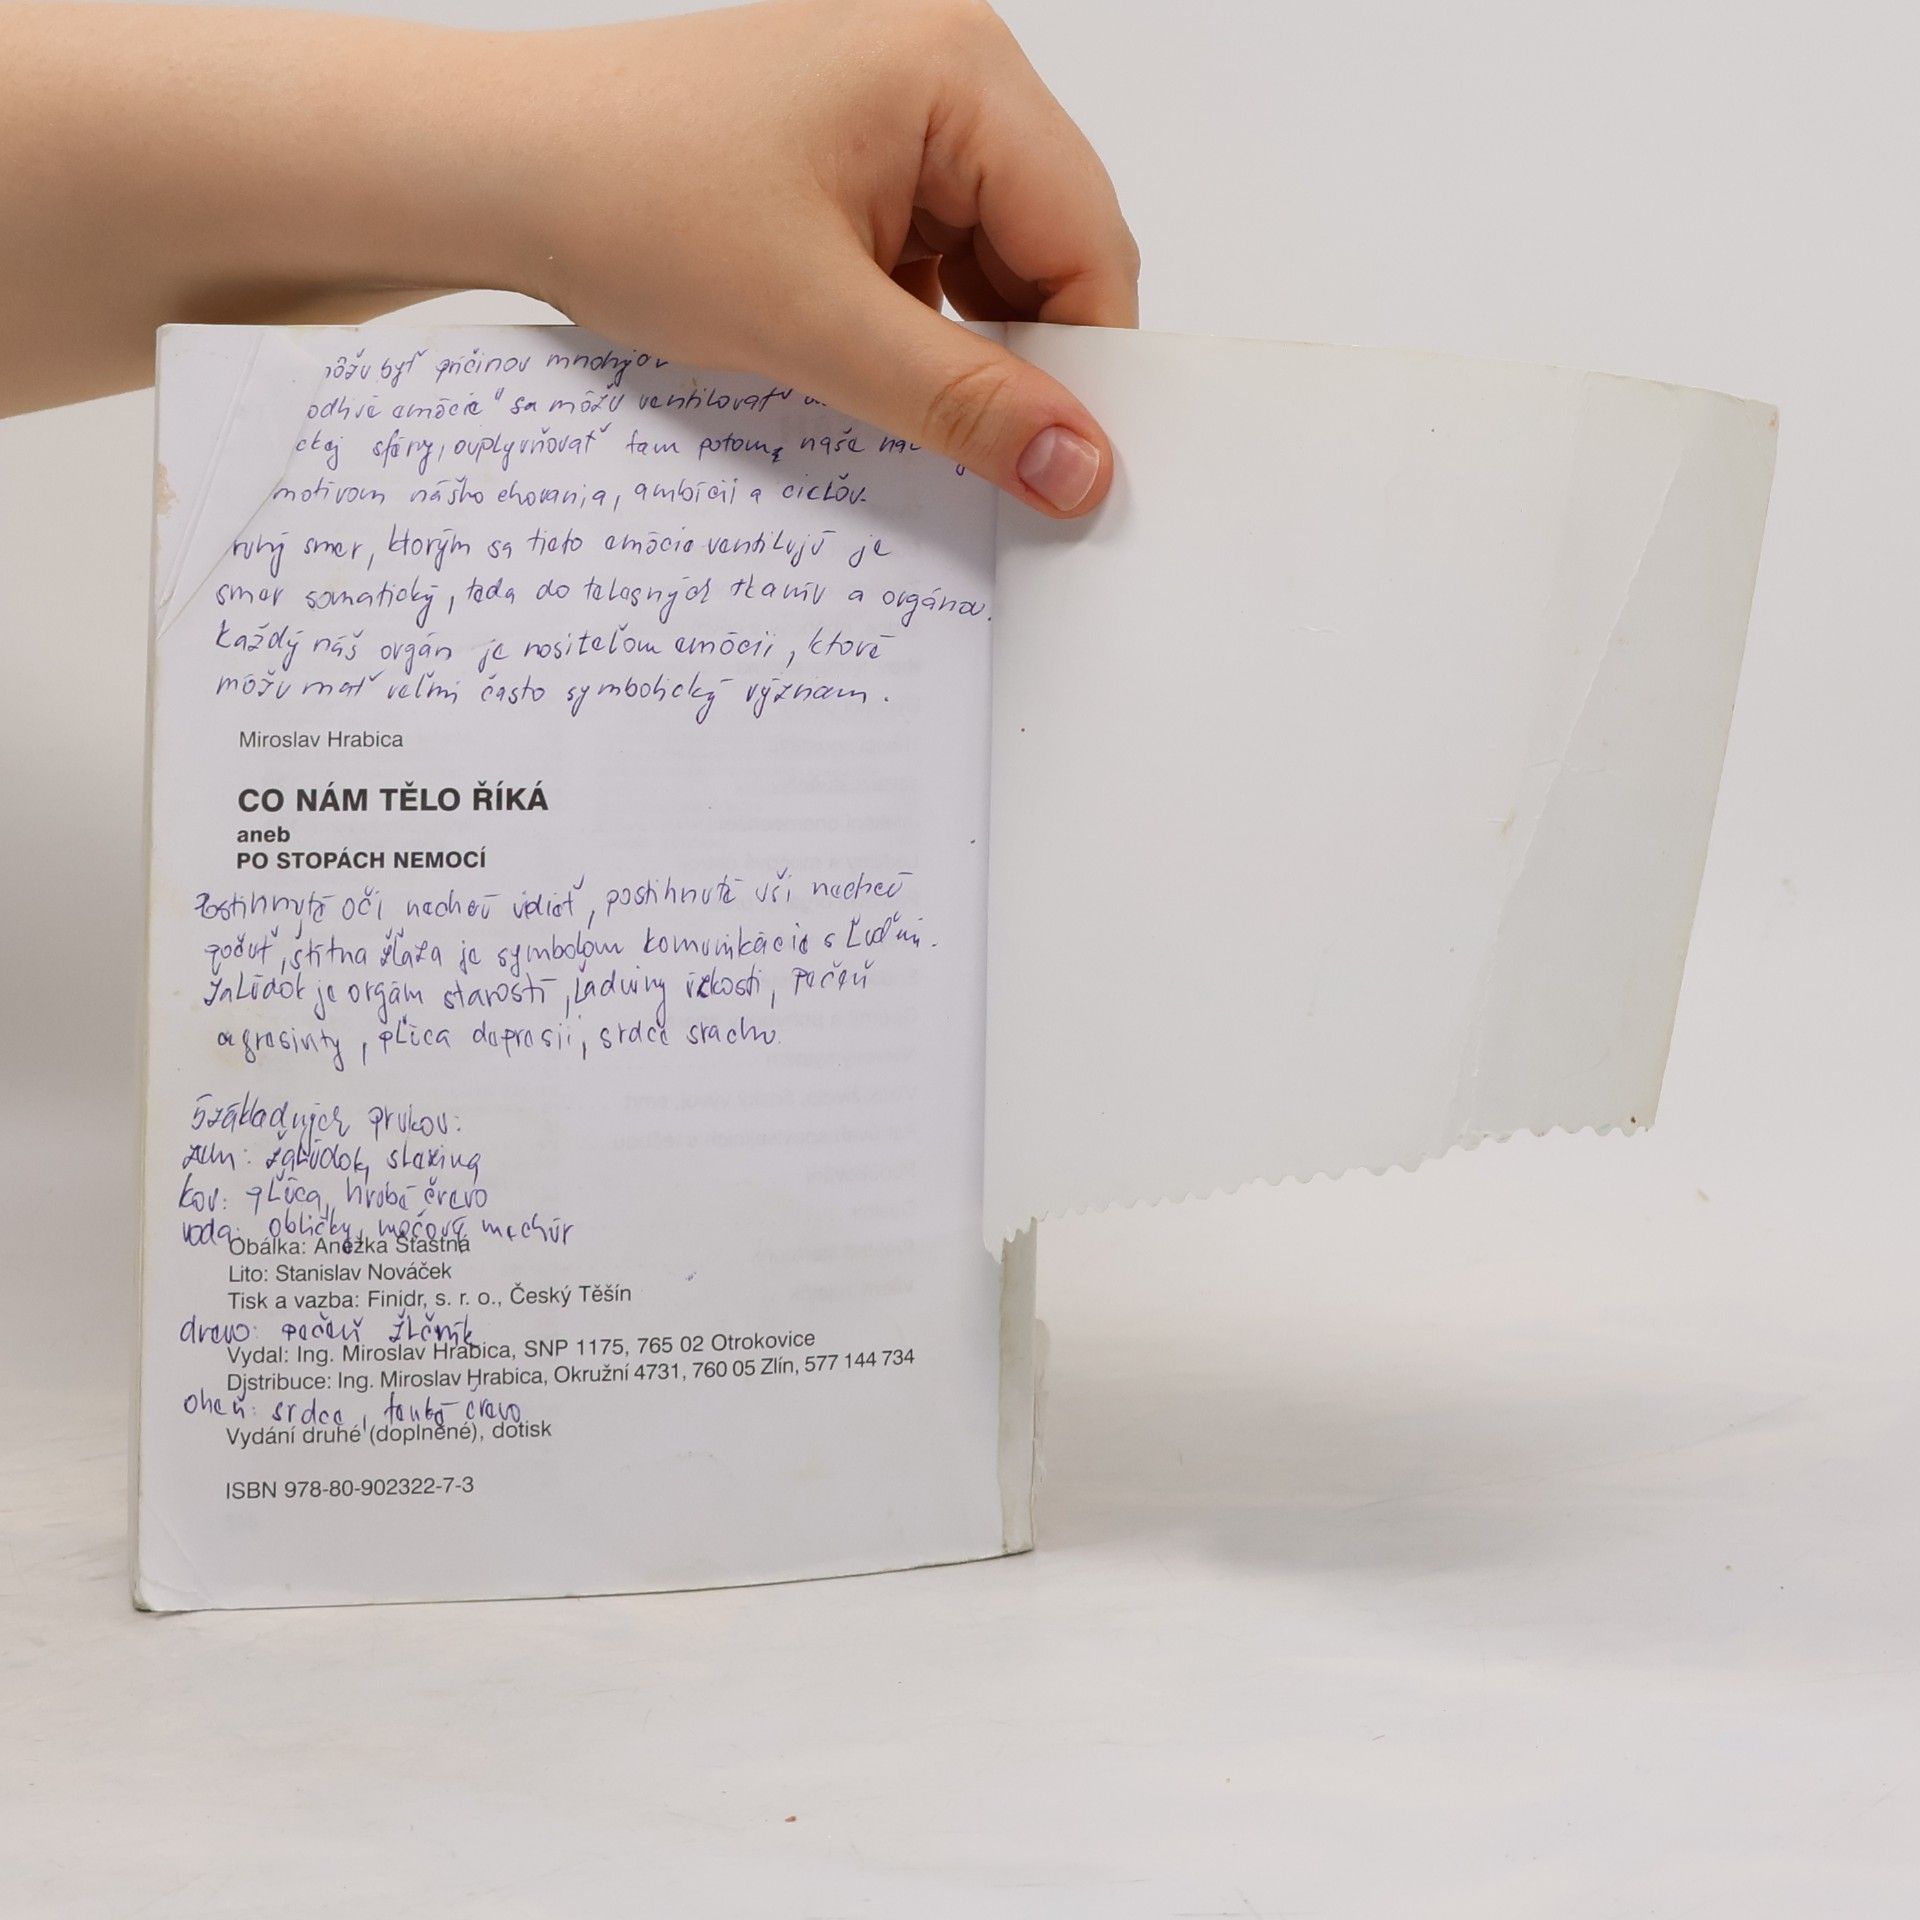 môžu byť príčinov mnohých
odlivé emócie" sa môžu ventilovať
ckej sféry, ovplyvňovať tam potom naše
motivom nášho chovania, ambícií a cieľov.
ruhý smer, ktorým sa tieto emócie ventilujú je
smer somatický, teda do telesných tkanív a orgánov.
Každý náš orgán je nositeľom emócií, ktoré
môžu mať veľmi často symbolický význam.
Miroslav Hrabica
CO NÁM TĚLO ŘÍKÁ
aneb
PO STOPÁCH NEMOCÍ
Postihnuté oči nechcú vidieť, postihnuté uši nechcú
počuť, štítna žľaza je symbolom komunikácie s ľuďmi.
Žalúdok je orgám starostí, ľadviny úzkosti, pečeň
agresivity, pľúca depresií, srdce strachu.
5 základných prvkov:
zem: žalúdok, slezina
kov: pľúca, hrubé črevo
voda: obličky, močový mechúr
Obálka: Anežka Šťastná
Lito: Stanislav Nováček
Tisk a vazba: Finidr, s. r. o., Český Těšín
drevo: pečeň žlčník
Vydal: Ing. Miroslav Hrabica, SNP 1175, 765 02 Otrokovice
Distribuce: Ing. Miroslav Hrabica, Okružní 4731, 760 05 Zlín, 577 144 734
oheň: srdce, tenké črevo
Vydání druhé (doplněné), dotisk
ISBN 978-80-902322-7-3